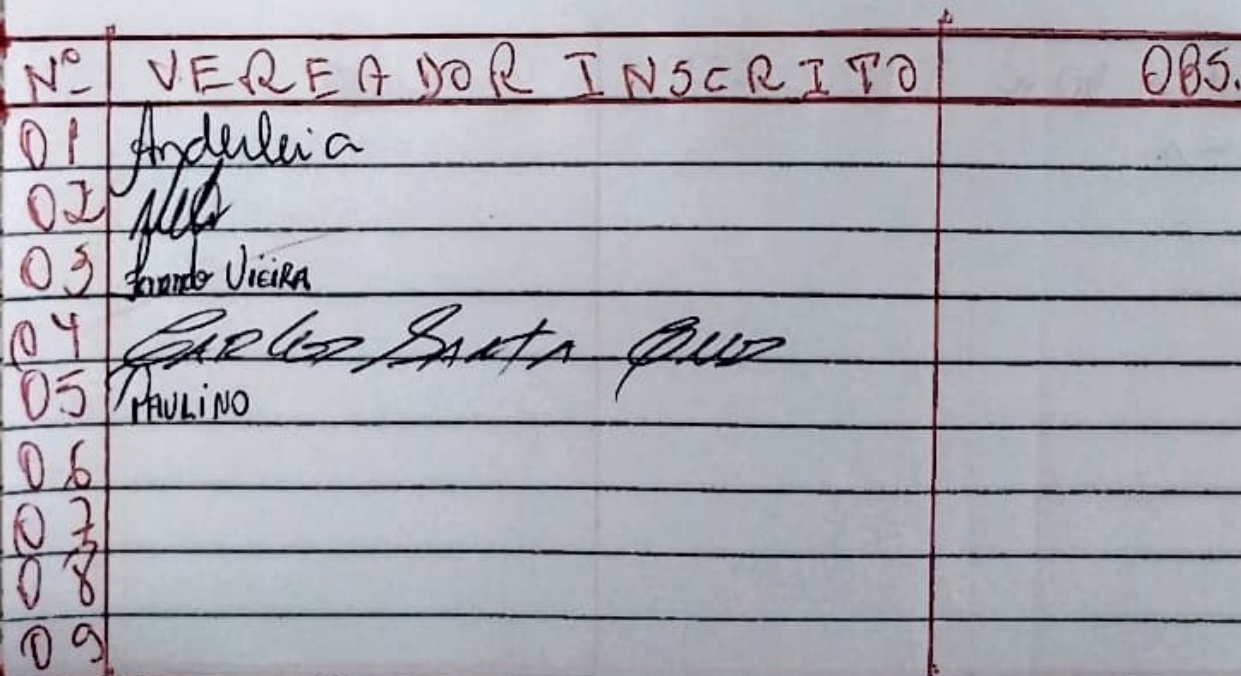 Nº VEREADOR INSCRITO OBS.
01 Anderleia
02
03 VIEIRA
04 CARLOS SANTA CRUZ
05 PAULINO
06
07
08
09